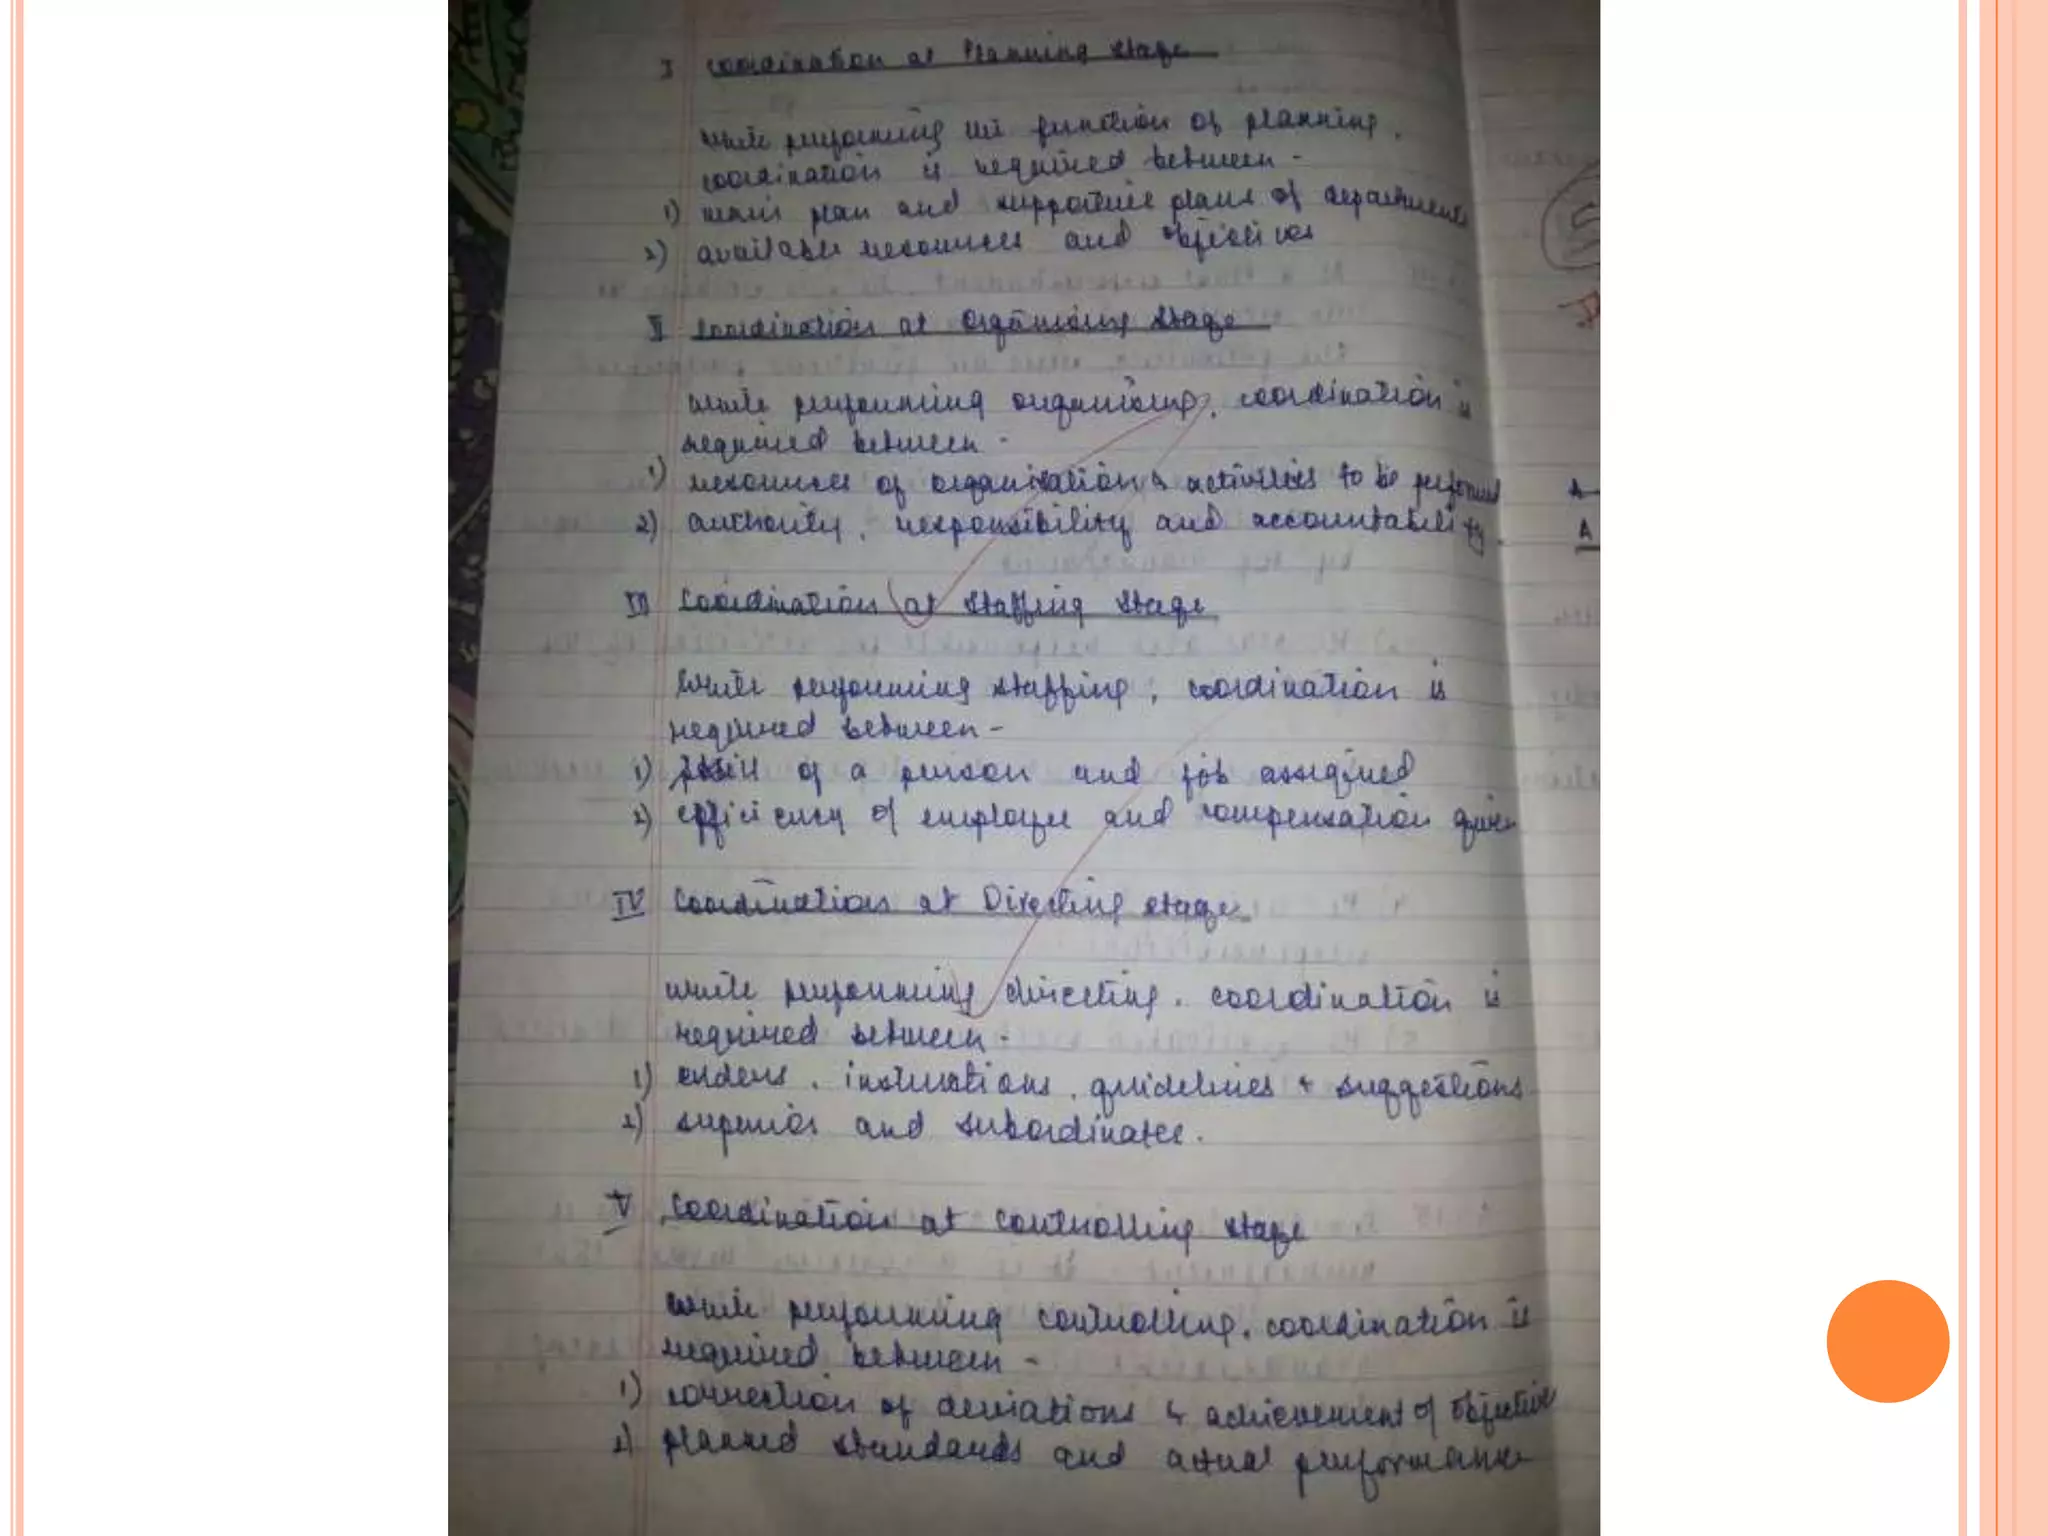 I Coordination at Planning Stage
While performing the function of planning,
coordination is required between -
1) main plan and supportive plans of departments
2) available resources and objectives
II Coordination at Organising Stage
While performing organising, coordination is
required between -
1) resources of organisation & activities to be performed
2) authority, responsibility and accountability.
III Coordination at Staffing Stage
While performing staffing, coordination is
required between -
1) skill of a person and job assigned
2) efficiency of employee and compensation given
IV Coordination at Directing Stage
While performing directing, coordination is
required between -
1) orders, instructions, guidelines & suggestions
2) superior and subordinates.
V Coordination at Controlling Stage
While performing controlling, coordination is
required between -
1) correction of deviations & achievement of objective
2) planned standards and actual performance